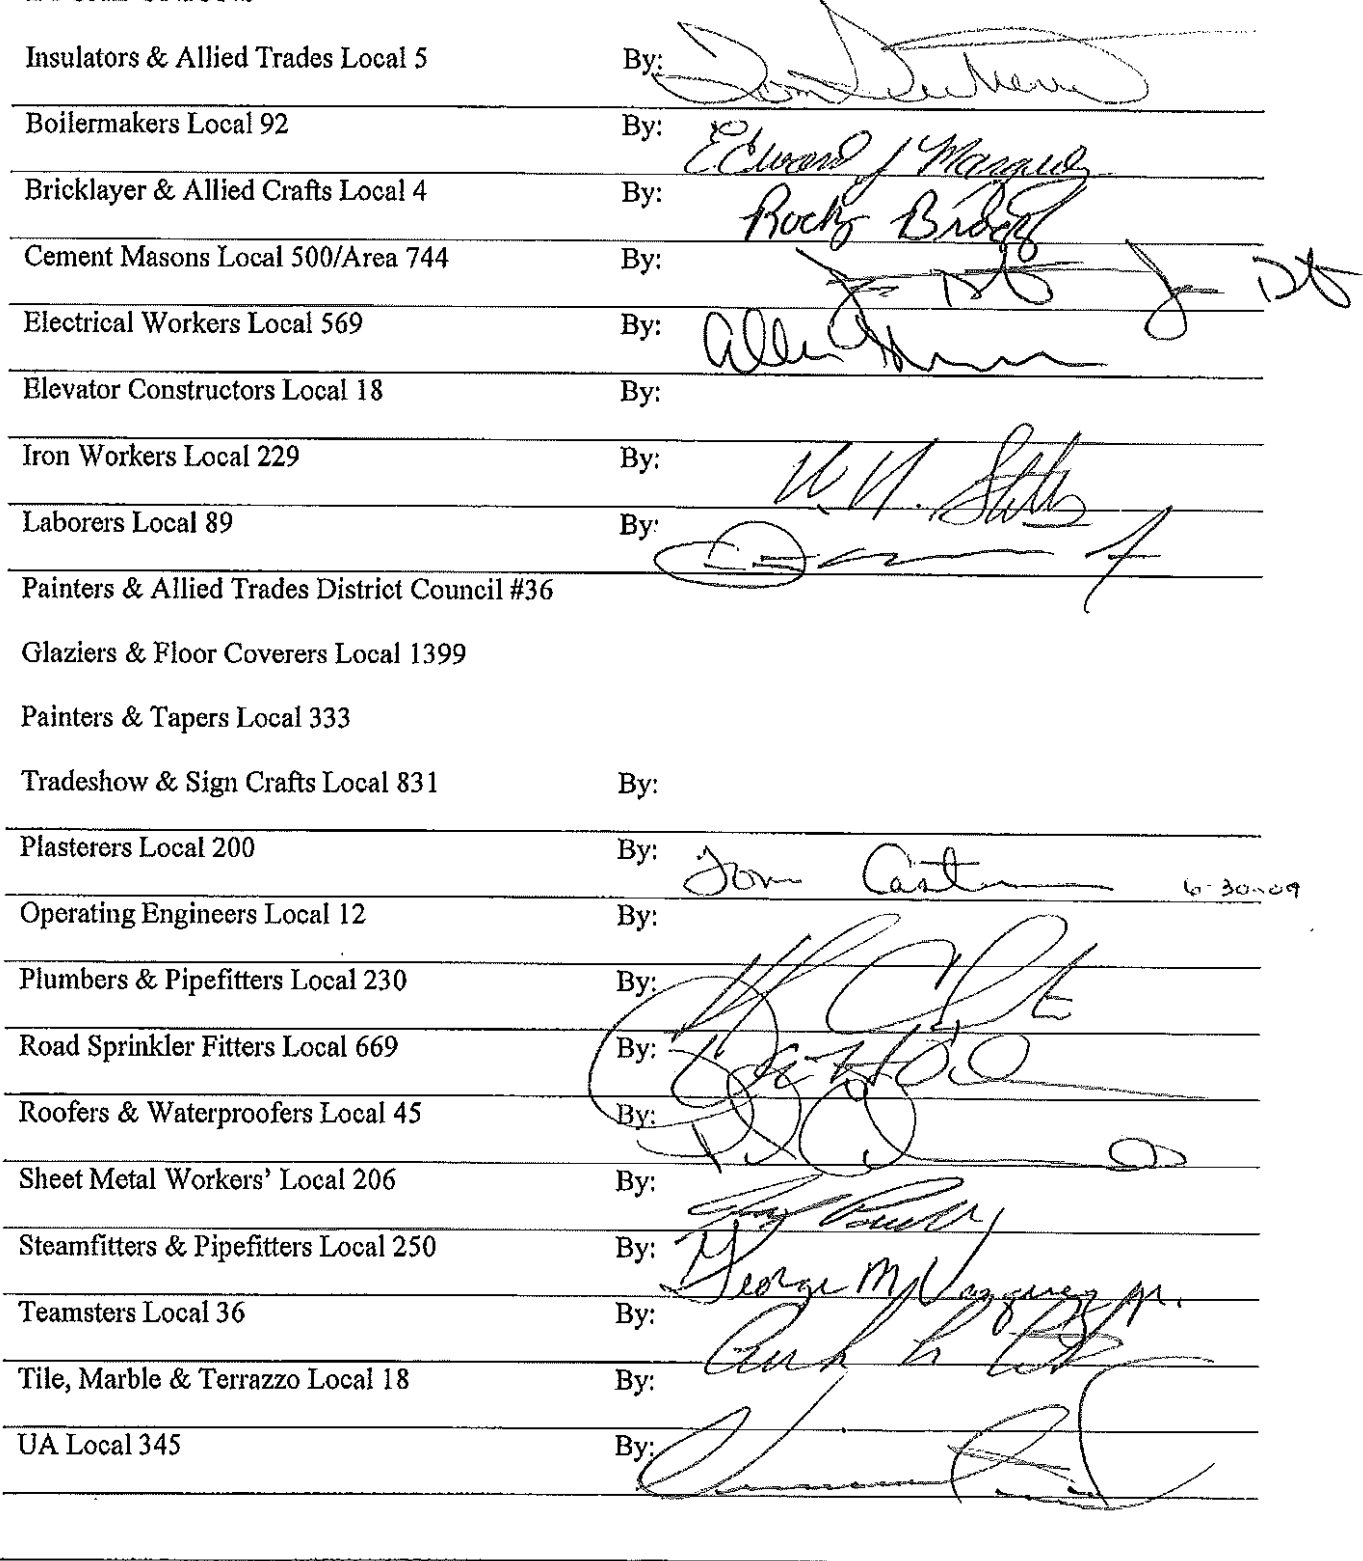 Insulators & Allied Trades Local 5 By: Tom
Boilermakers Local 92 By: Edward J Marquez
Bricklayer & Allied Crafts Local 4 By: Rocky
Cement Masons Local 500/Area 744 By:
Electrical Workers Local 569 By: Allen
Elevator Constructors Local 18 By:
Iron Workers Local 229 By:
Laborers Local 89 By:
Painters & Allied Trades District Council #36
Glaziers & Floor Coverers Local 1399
Painters & Tapers Local 333
Tradeshow & Sign Crafts Local 831 By:
Plasterers Local 200 By: Tom 6-30-09
Operating Engineers Local 12 By:
Plumbers & Pipefitters Local 230 By:
Road Sprinkler Fitters Local 669 By:
Roofers & Waterproofers Local 45 By:
Sheet Metal Workers' Local 206 By:
Steamfitters & Pipefitters Local 250 By: George M Vazquez Jr.
Teamsters Local 36 By:
Tile, Marble & Terrazzo Local 18 By:
UA Local 345 By: